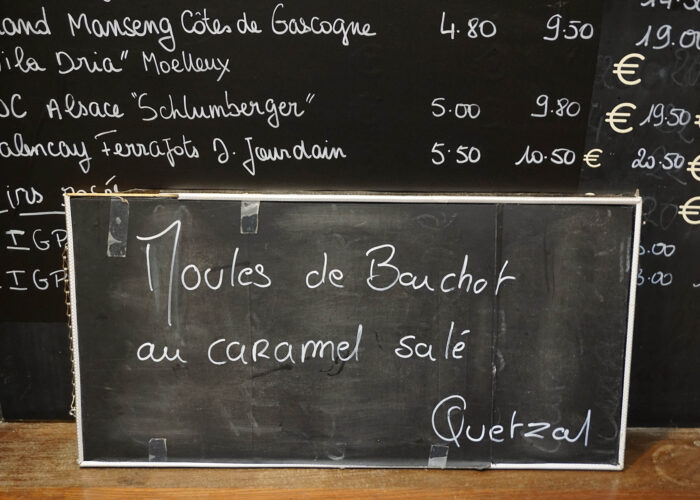 Manseng Côtes de Gascogne 4.80 9.50 19.00
Dria" Moelleux €
Alsace "Schlumberger" 5.00 9.80 € 19.50 €
Ferrafots J. Jourdain 5.50 10.50 € 20.50 €
€
IGP
IGP
Moules de Bouchot
au caramel salé
Quetzal